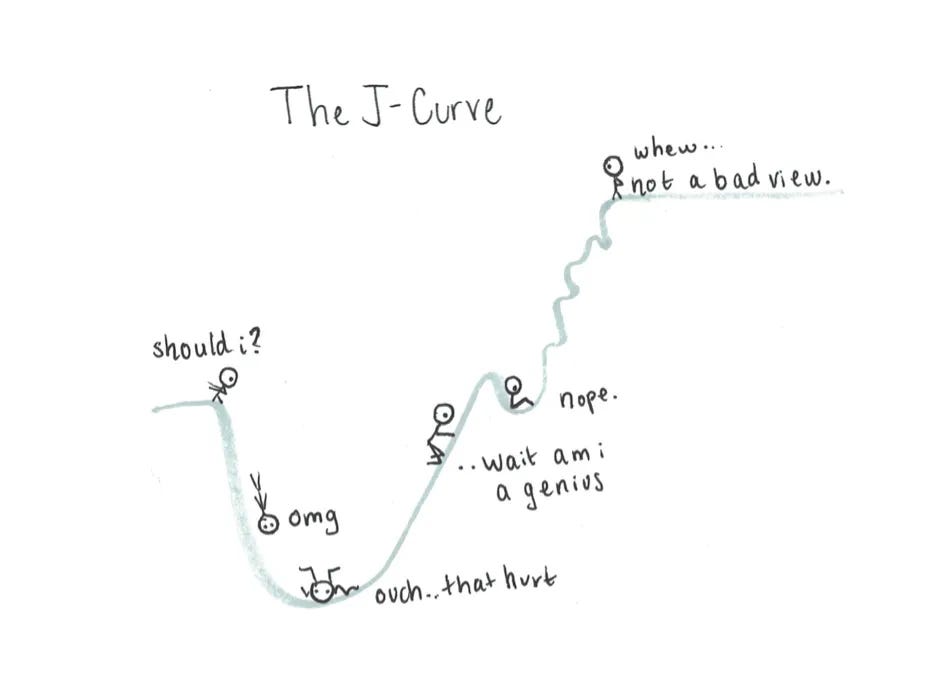 The J-Curve
whew...
not a bad view.
should i?
nope.
..wait am i
a genius
omg
ouch..that hurt